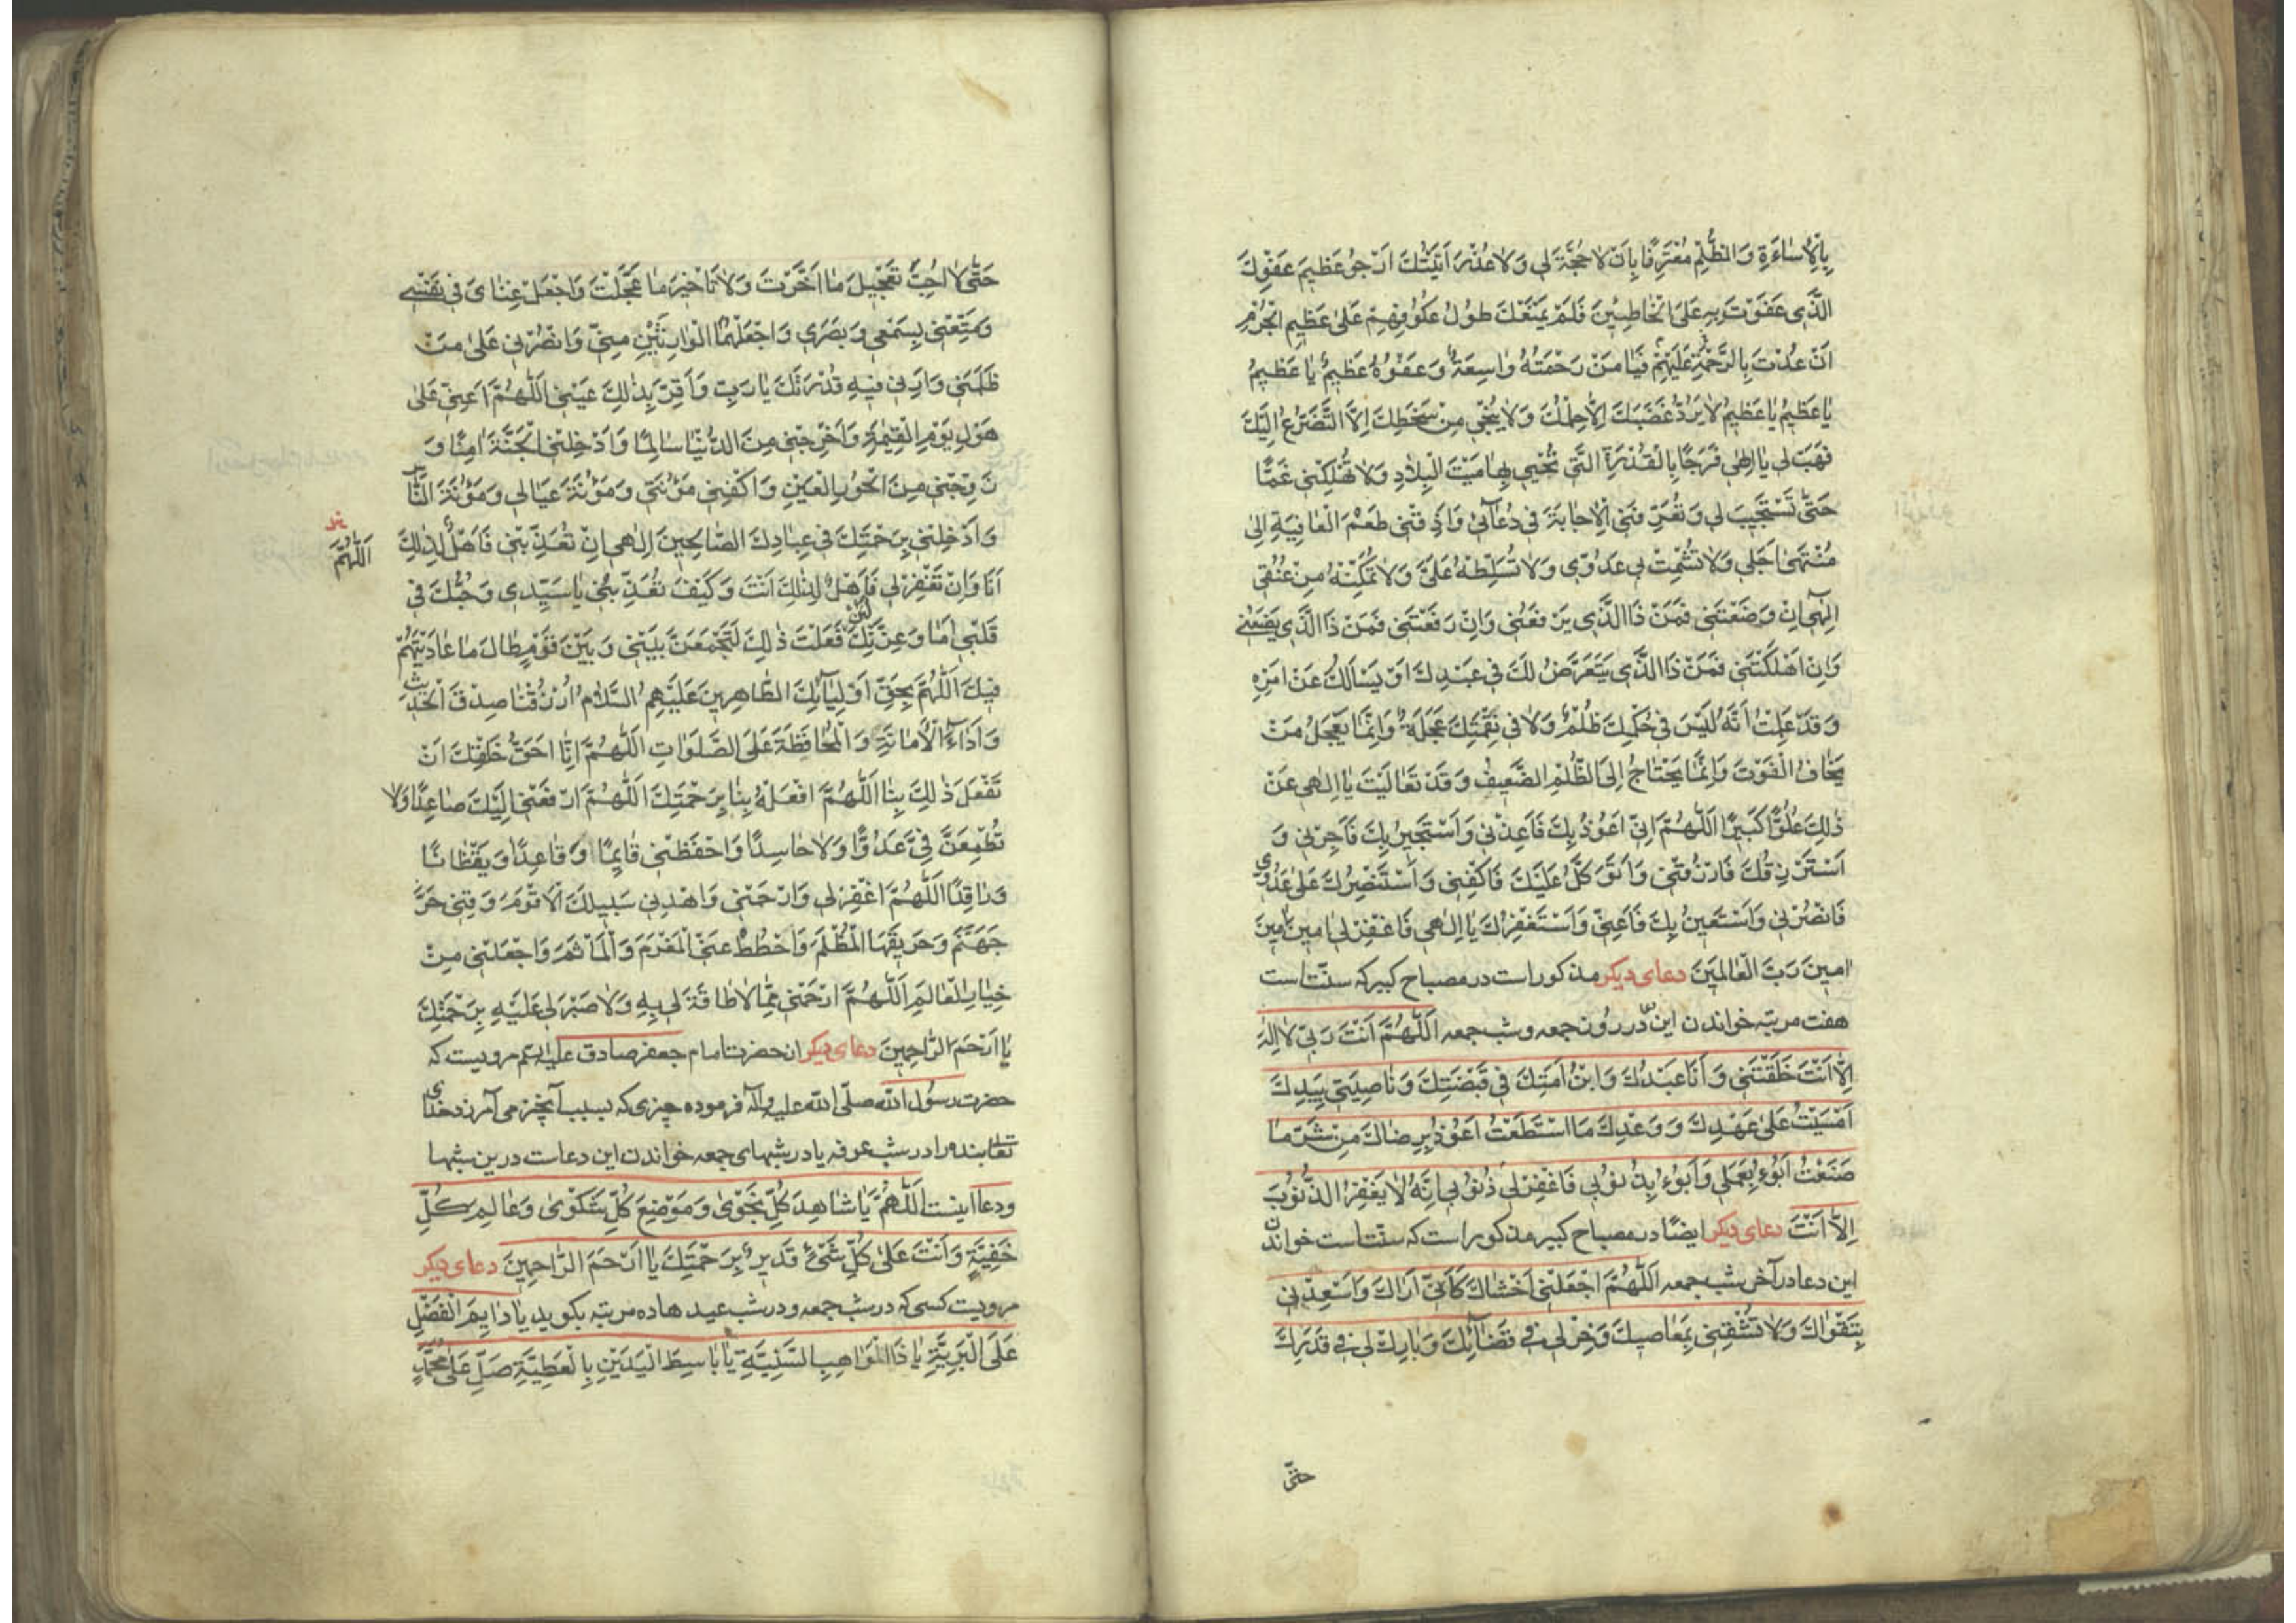 بِالْاِسٰاءَةِ وَالظُّلْمِ مُعْتَرِفًا بِاَنْ لٰا حُجَّةَ لِي وَلٰا عُذْرَ اَتَيْتُكَ اَرْجُو عَظِيمَ عَفْوِكَ
الَّذِي عَفَوْتَ بِهِ عَلَى الْخٰاطِئِينَ فَلَمْ يَمْنَعْكَ طُولُ عُكُوفِهِمْ عَلىٰ عَظِيمِ الْجُرْمِ
اَنْ عُدْتَ بِالرَّحْمَةِ عَلَيْهِمْ فَيٰا مَنْ رَحْمَتُهُ وٰاسِعَةٌ وَعَفْوُهُ عَظِيمٌ يٰا عَظِيمُ
يٰا عَظِيمُ يٰا عَظِيمُ لٰا يَرُدُّ غَضَبَكَ اِلّٰا حِلْمُكَ وَلٰا يُنْجِي مِنْ سَخَطِكَ اِلَّا التَّضَرُّعُ اِلَيْكَ
فَهَبْ لِي يٰا اِلٰهِي فَرَجًا بِالْقُدْرَةِ الَّتِي تُحْيِي بِهٰا مَيْتَ الْبِلٰادِ وَلٰا تُهْلِكْنِي غَمًّا
حَتّٰى تَسْتَجِيبَ لِي وَتُعَرِّفَنِي الْاِجٰابَةَ فِي دُعٰآئِي وَاَذِقْنِي طَعْمَ الْعٰافِيَةِ اِلىٰ
مُنْتَهىٰ اَجَلِي وَلٰا تُشْمِتْ بِي عَدُوِّي وَلٰا تُسَلِّطْهُ عَلَيَّ وَلٰا تُمَكِّنْهُ مِنْ عُنُقِي
اِلٰهِي اِنْ وَضَعْتَنِي فَمَنْ ذَا الَّذِي يَرْفَعُنِي وَاِنْ رَفَعْتَنِي فَمَنْ ذَا الَّذِي يَضَعُنِي
وَاِنْ اَهْلَكْتَنِي فَمَنْ ذَا الَّذِي يَتَعَرَّضُ لَكَ فِي عَبْدِكَ اَوْ يَسْاَلُكَ عَنْ اَمْرِهِ
وَقَدْ عَلِمْتُ اَنَّهُ لَيْسَ فِي حُكْمِكَ ظُلْمٌ وَلٰا فِي نِقْمَتِكَ عَجَلَةٌ وَاِنَّمٰا يَعْجَلُ مَنْ
يَخٰافُ الْفَوْتَ وَاِنَّمٰا يَحْتٰاجُ اِلَى الظُّلْمِ الضَّعِيفُ وَقَدْ تَعٰالَيْتَ يٰا اِلٰهِي عَنْ
ذٰلِكَ عُلُوًّا كَبِيرًا اَللّٰهُمَّ اِنِّي اَعُوذُ بِكَ فَاَعِذْنِي وَاَسْتَجِيرُ بِكَ فَاَجِرْنِي وَ
اَسْتَرْزِقُكَ فَارْزُقْنِي وَاَتَوَكَّلُ عَلَيْكَ فَاكْفِنِي وَاَسْتَنْصِرُكَ عَلىٰ عَدُوِّي
فَانْصُرْنِي وَاَسْتَعِينُ بِكَ فَاَعِنِّي وَاَسْتَغْفِرُكَ يٰا اِلٰهِي فَاغْفِرْ لِي اٰمِينَ اٰمِينَ
اٰمِينَ رَبَّ الْعٰالَمِينَ دعای دیکر مذکور است در مصباح کبیر که سنّت است
هفت مرتبه خواندن این در روز جمعه و شب جمعه اَللّٰهُمَّ اَنْتَ رَبِّي لٰا اِلٰهَ
اِلّٰا اَنْتَ خَلَقْتَنِي وَاَنَا عَبْدُكَ وَابْنُ اَمَتِكَ فِي قَبْضَتِكَ وَنٰاصِيَتِي بِيَدِكَ
اَمْسَيْتُ عَلىٰ عَهْدِكَ وَوَعْدِكَ مَا اسْتَطَعْتُ اَعُوذُ بِرِضٰاكَ مِنْ شَرِّ مٰا
صَنَعْتُ اَبُوءُ بِعَمَلِي وَاَبُوءُ بِذُنُوبِي فَاغْفِرْ لِي ذُنُوبِي اِنَّهُ لٰا يَغْفِرُ الذُّنُوبَ
اِلّٰا اَنْتَ دعای دیکر ایضًا در مصباح کبیر مذکور است که سنّت است خواندن
این دعا در آخر شب جمعه اَللّٰهُمَّ اجْعَلْنِي اَخْشٰاكَ كَاَنِّي اَرٰاكَ وَاَسْعِدْنِي
بِتَقْوٰاكَ وَلٰا تُشْقِنِي بِمَعٰاصِيكَ وَخِرْ لِي فِي قَضٰآئِكَ وَبٰارِكْ لِي فِي قَدَرِكَ
حتّى
حَتّٰى لٰا اُحِبَّ تَعْجِيلَ مٰا اَخَّرْتَ وَلٰا تَاْخِيرَ مٰا عَجَّلْتَ وَاجْعَلْ غِنٰايَ فِي نَفْسِي
وَمَتِّعْنِي بِسَمْعِي وَبَصَرِي وَاجْعَلْهُمَا الْوٰارِثَيْنِ مِنِّي وَانْصُرْنِي عَلىٰ مَنْ
ظَلَمَنِي وَاَرِنِي فِيهِ قُدْرَتَكَ يٰا رَبِّ وَاَقِرَّ بِذٰلِكَ عَيْنِي اَللّٰهُمَّ اَعِنِّي عَلىٰ
هَوْلِ يَوْمِ الْقِيٰمَةِ وَاَخْرِجْنِي مِنَ الدُّنْيٰا سٰالِمًا وَاَدْخِلْنِي الْجَنَّةَ اٰمِنًا وَ
زَوِّجْنِي مِنَ الْحُورِ الْعِينِ وَاكْفِنِي مَؤُنَتِي وَمَؤُنَةَ عِيٰالِي وَمَؤُنَةَ النّٰاسِ
وَاَدْخِلْنِي بِرَحْمَتِكَ فِي عِبٰادِكَ الصّٰالِحِينَ اِلٰهِي اِنْ تُعَذِّبْنِي فَاَهْلٌ لِذٰلِكَ
اَللّٰهُمَّ
اَنَا وَاِنْ تَغْفِرْ لِي فَاَهْلٌ لِذٰلِكَ اَنْتَ وَكَيْفَ تُعَذِّبُنِي يٰا سَيِّدِي وَحُبُّكَ فِي
قَلْبِي اَمٰا وَعِزَّتِكَ لَئِنْ فَعَلْتَ ذٰلِكَ لَتَجْمَعَنَّ بَيْنِي وَبَيْنَ قَوْمٍ طٰالَ مٰا عٰادَيْتُهُمْ
فِيكَ اَللّٰهُمَّ بِحَقِّ اَوْلِيٰآئِكَ الطّٰاهِرِينَ عَلَيْهِمُ السَّلٰامُ اُرْزُقْنٰا صِدْقَ الْحَدِيثِ
وَاَدٰآءَ الْاَمٰانَةِ وَالْمُحٰافَظَةَ عَلَى الصَّلَوٰاتِ اَللّٰهُمَّ اِنّٰا اَحَقُّ خَلْقِكَ اَنْ
تَفْعَلَ ذٰلِكَ بِنٰا اَللّٰهُمَّ افْعَلْهُ بِنٰا بِرَحْمَتِكَ اَللّٰهُمَّ ارْفَعْنِي اِلَيْكَ صٰاعِدًا وَلٰا
تُطْمِعَنَّ فِيَّ عَدُوًّا وَلٰا حٰاسِدًا وَاحْفَظْنِي قٰائِمًا وَقٰاعِدًا وَيَقْظٰانًا
وَرٰاقِدًا اَللّٰهُمَّ اغْفِرْ لِي وَارْحَمْنِي وَاهْدِنِي سَبِيلَكَ الْاَقْوَمَ وَقِنِي حَرَّ
جَهَنَّمَ وَحَرِيقَهَا الْمُظْلَمَ وَاحْطُطْ عَنِّي الْمَغْرَمَ وَالْمَاْثَمَ وَاجْعَلْنِي مِنْ
خِيٰارِ الْعٰالَمِ اَللّٰهُمَّ ارْحَمْنِي مِمّٰا لٰا طٰاقَةَ لِي بِهِ وَلٰا صَبْرَ لِي عَلَيْهِ بِرَحْمَتِكَ
يٰا اَرْحَمَ الرّٰاحِمِينَ دعای دیکر از حضرت امام جعفر صادق علیه السّلم مرویست که
حضرت رسول الله صلّی الله علیه وآله فرموده چیزی که بسبب آنچیز می آمرزد خدای
تعالی بنده را در شب عرفه یا در شبهای جمعه خواندن این دعاست درین شبها
ودعا اینست اَللّٰهُمَّ يٰا شٰاهِدَ كُلِّ نَجْوىٰ وَمَوْضِعَ كُلِّ شَكْوىٰ وَعٰالِمَ كُلِّ
خَفِيَّةٍ وَاَنْتَ عَلىٰ كُلِّ شَيْءٍ قَدِيرٌ بِرَحْمَتِكَ يٰا اَرْحَمَ الرّٰاحِمِينَ دعای دیکر
مرویست کسی که در شب جمعه ودر شب عید ها ده مرتبه بکوید يٰا دٰايِمَ الْفَضْلِ
عَلَى الْبَرِيَّةِ يٰا ذَا الْمَوٰاهِبِ السَّنِيَّةِ يٰا بٰاسِطَ الْيَدَيْنِ بِالْعَطِيَّةِ صَلِّ عَلىٰ مُحَمَّدٍ